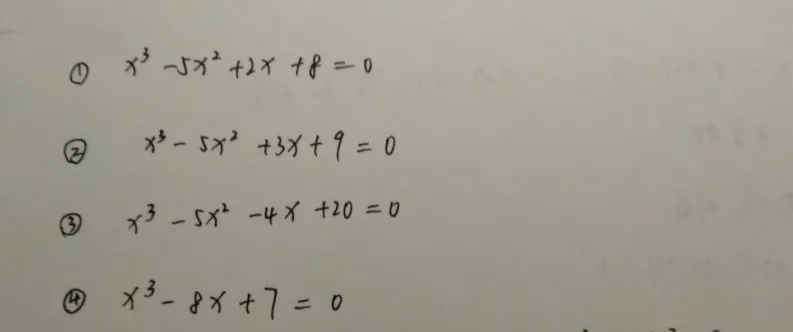 ① x³ -5x² +2x +8 = 0
② x³ - 5x² +3x + 9 = 0
③ x³ - 5x² -4x +20 = 0
④ x³ - 8x + 7 = 0